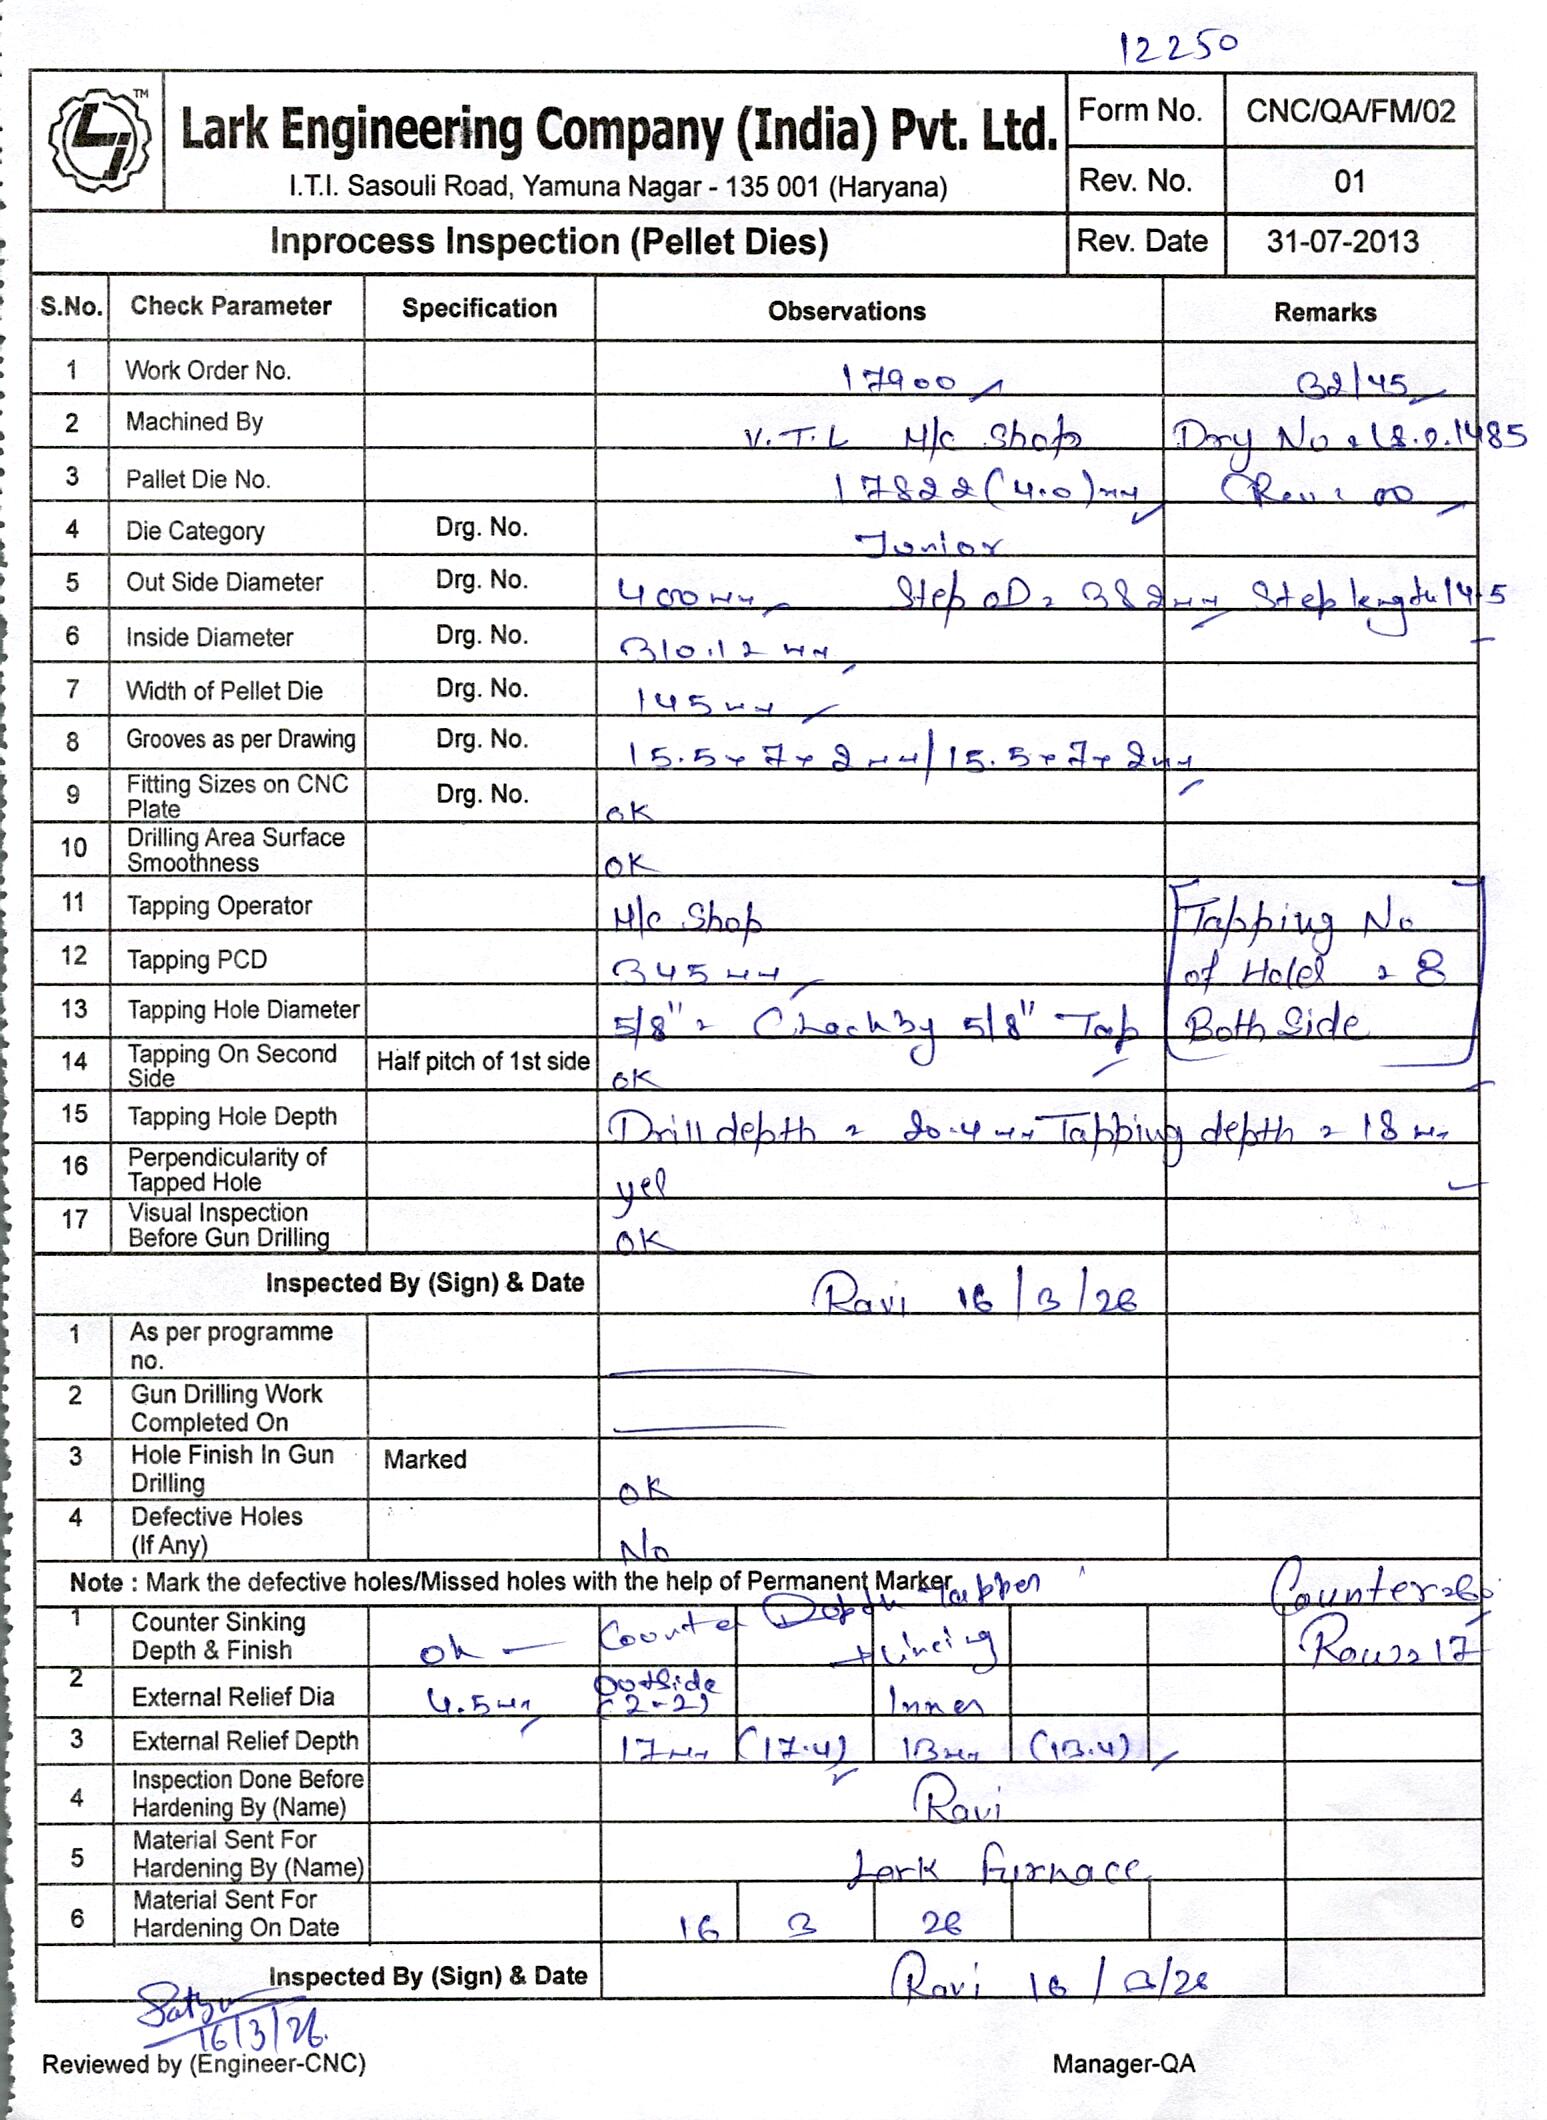 12250
TM
Lark Engineering Company (India) Pvt. Ltd.
I.T.I. Sasouli Road, Yamuna Nagar - 135 001 (Haryana)
Form No. CNC/QA/FM/02
Rev. No. 01
Inprocess Inspection (Pellet Dies) Rev. Date 31-07-2013
S.No. Check Parameter Specification Observations Remarks
1 Work Order No. 17900 32/45
2 Machined By V.T.L M/c Shop Drg No = 18.2.1485
3 Pallet Die No. 17822 (4.0) mm (Rev: 00
4 Die Category Drg. No. Junior
5 Out Side Diameter Drg. No. 400mm Step OD = 382mm Step length 14.5
6 Inside Diameter Drg. No. 310.12 mm
7 Width of Pellet Die Drg. No. 145mm
8 Grooves as per Drawing Drg. No. 15.5 x 7 x 2 mm/15.5 x 7 x 2mm
9 Fitting Sizes on CNC Plate Drg. No. OK
10 Drilling Area Surface Smoothness OK
11 Tapping Operator M/c Shop Tapping No
12 Tapping PCD 345mm of Holes = 8
13 Tapping Hole Diameter 5/8" = Check By 5/8" Tap Both Side
14 Tapping On Second Side Half pitch of 1st side OK
15 Tapping Hole Depth Drill depth = 20.4 mm Tapping depth = 18 mm
16 Perpendicularity of Tapped Hole yes
17 Visual Inspection Before Gun Drilling OK
Inspected By (Sign) & Date Ravi 16/3/26
1 As per programme no.
2 Gun Drilling Work Completed On
3 Hole Finish In Gun Drilling Marked OK
4 Defective Holes (If Any) No
Note : Mark the defective holes/Missed holes with the help of Permanent Marker
1 Counter Sinking Depth & Finish ok Counter Depth Tapper Counter
Rows = 17
2 External Relief Dia 4.5mm Outside (2-2) Inner
3 External Relief Depth 17mm (17.4) 13mm (13.4)
4 Inspection Done Before Hardening By (Name) Ravi
5 Material Sent For Hardening By (Name) Lark Furnace
6 Material Sent For Hardening On Date 16 3 26
Inspected By (Sign) & Date Ravi 16/3/26
16/3/26.
Reviewed by (Engineer-CNC) Manager-QA